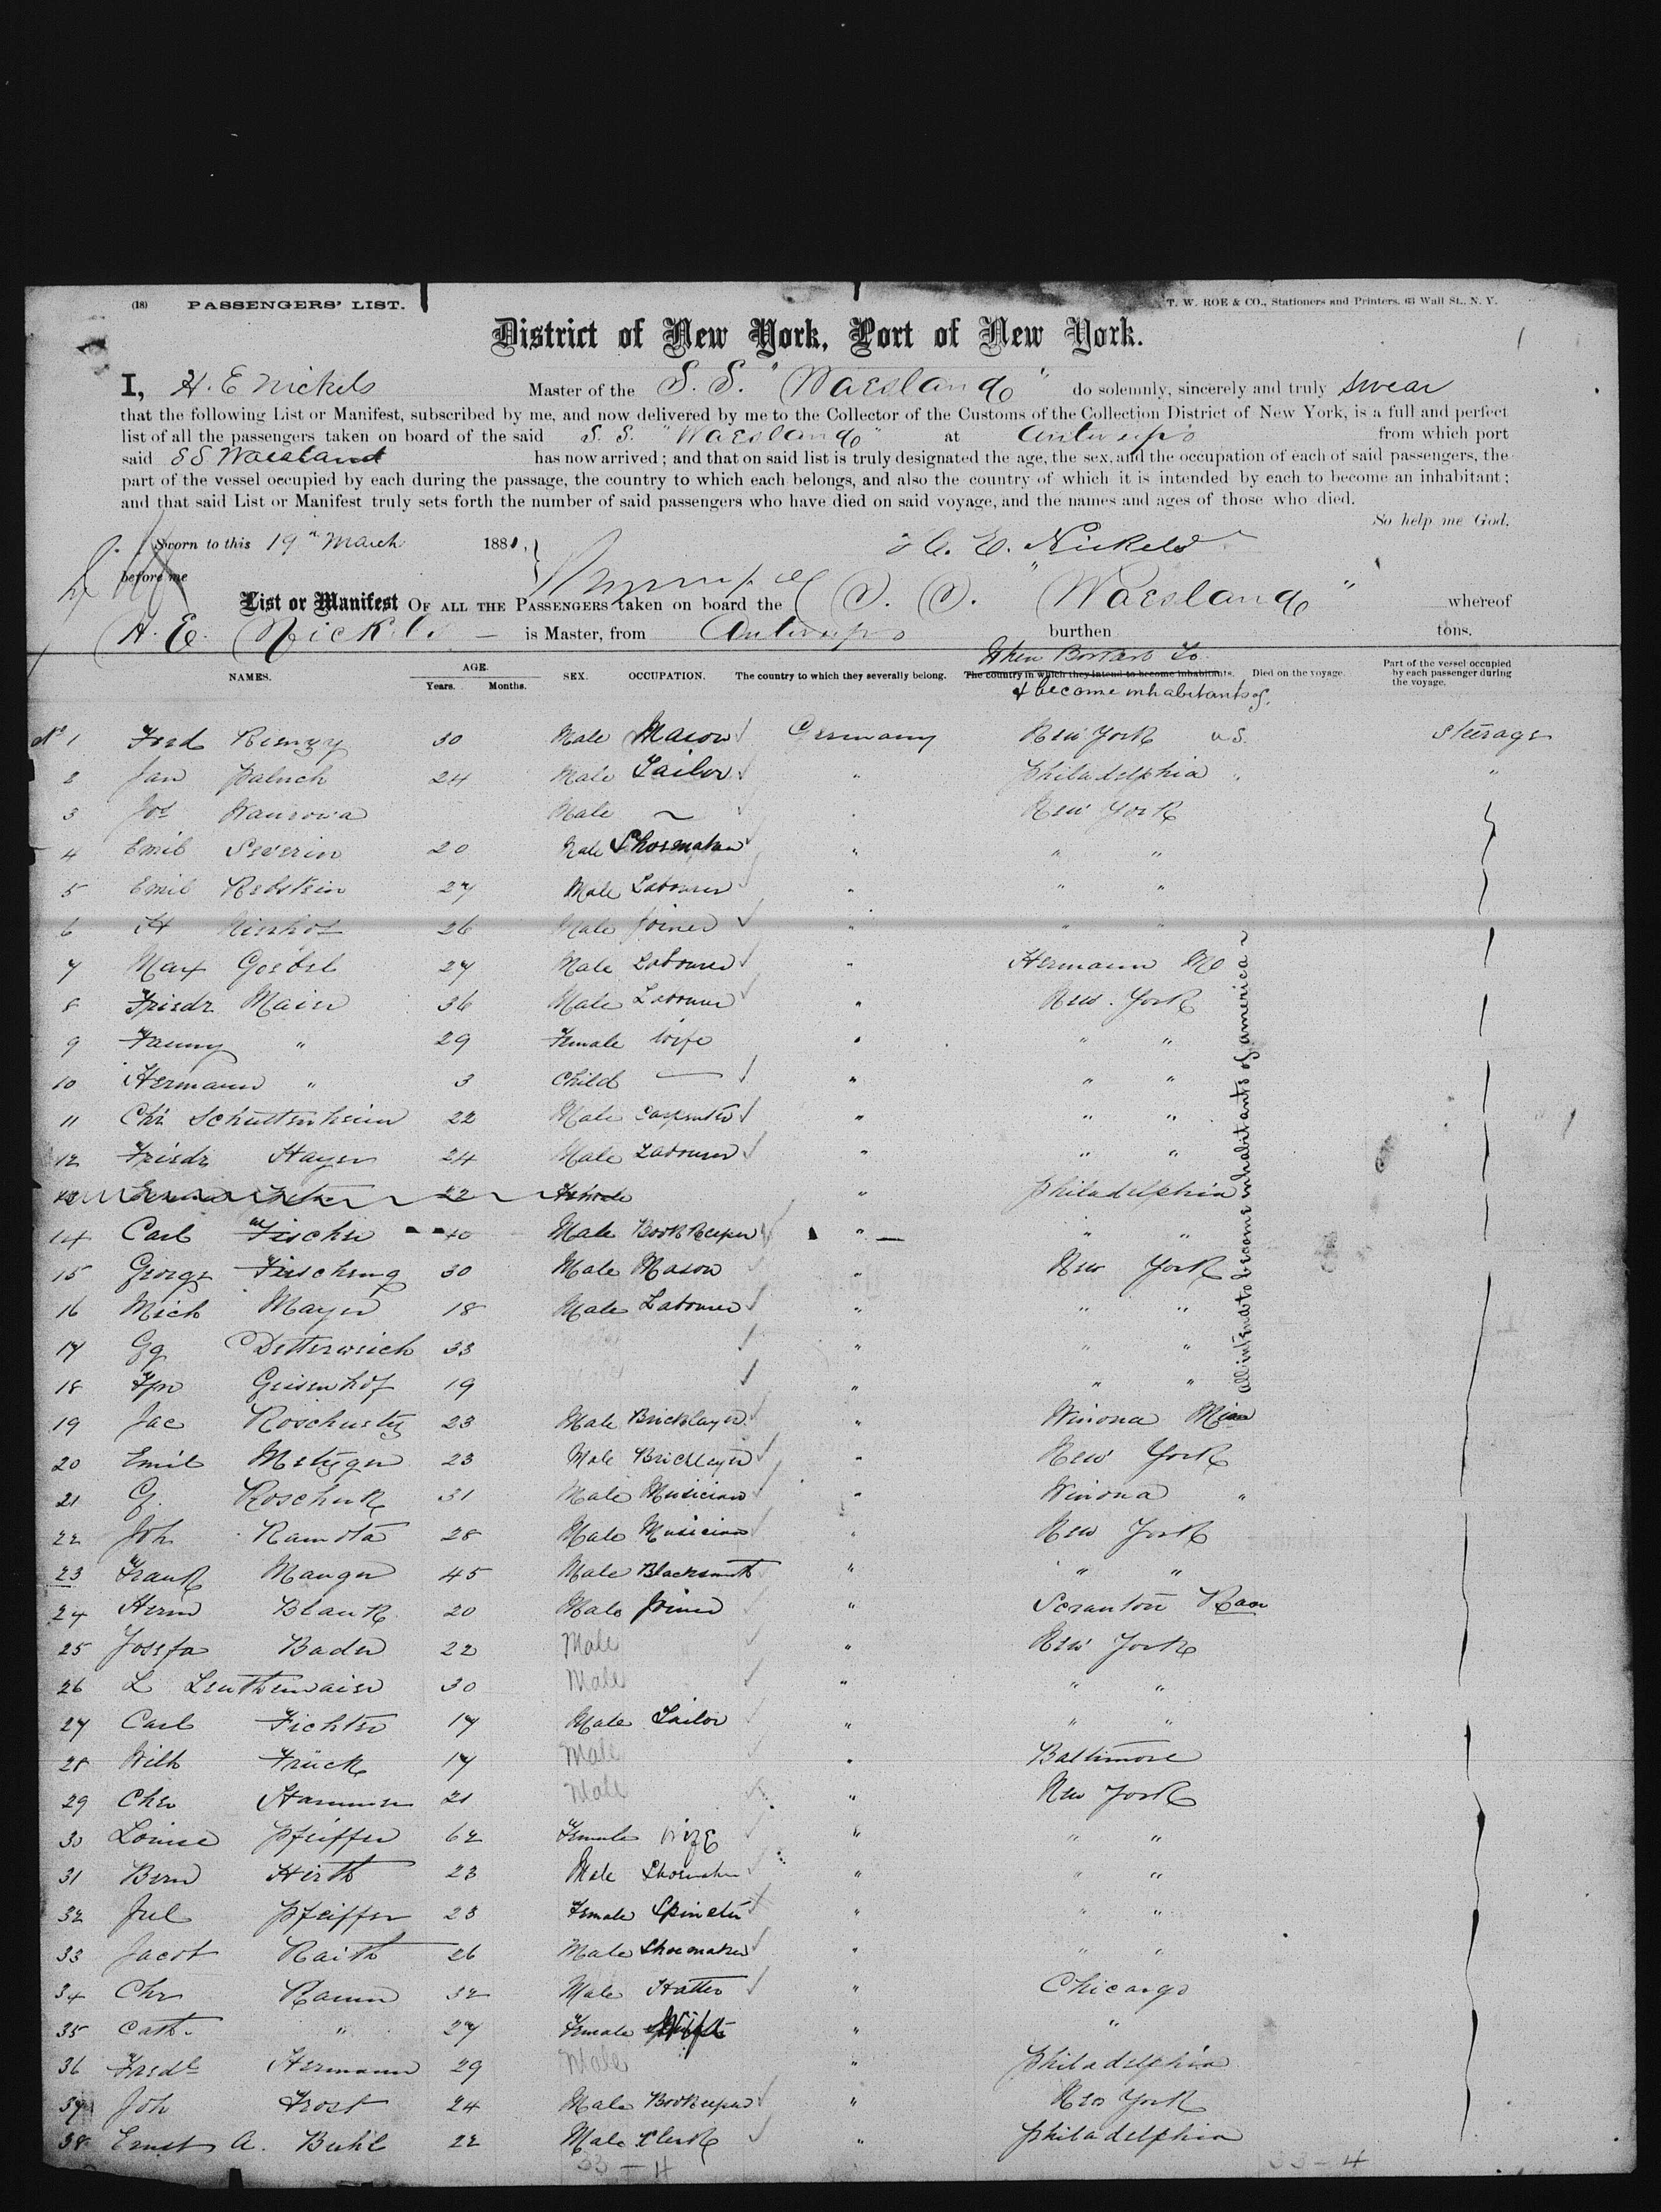 (18) PASSENGERS' LIST. T. W. ROE & CO., Stationers and Printers, 63 Wall St., N. Y.
District of New York, Port of New York.
I, H. E Nickels Master of the S. S. "Waesland" do solemnly, sincerely and truly swear
that the following List or Manifest, subscribed by me, and now delivered by me to the Collector of the Customs of the Collection District of New York, is a full and perfect
list of all the passengers taken on board of the said S. S. "Waesland" at Antwerp from which port
said SS Waesland has now arrived; and that on said list is truly designated the age, the sex, and the occupation of each of said passengers, the
part of the vessel occupied by each during the passage, the country to which each belongs, and also the country of which it is intended by each to become an inhabitant;
and that said List or Manifest truly sets forth the number of said passengers who have died on said voyage, and the names and ages of those who died.
So help me God.
Sworn to this 19th March 1881, H. E. Nickels
before me
List or Manifest OF ALL THE PASSENGERS taken on board the S. S. "Waesland" whereof
H. E. Nickels is Master, from Antwerp burthen tons.
When Bound To
NAMES. AGE. Years. Months. SEX. OCCUPATION. The country to which they severally belong. The country in which they intend to become inhabitants. Died on the voyage. Part of the vessel occupied by each passenger during the voyage.
& become inhabitants of.
No 1 Fred 30 Male Mason Germany New York U S. Steerage
2 Jan Paluch 24 Male Tailor " Philadelphia " "
3 Jos Male ~ New York
4 Emil Severin 20 Male Shoemaker " " "
5 Emil Rebstein 27 Male Labourer " " "
6 H Nierhof 26 Male Joiner " " "
7 Max Goebel 27 Male Labourer " Hermann Mo
8 Friedr Maier 36 Male Labourer " New York
9 Fanny " 29 Female Wife " " "
10 Hermann " 3 Child — " " "
11 Chr Schuttenheim 22 Male Carpenter " " "
12 Friedr Hayer 24 Male Labourer " " "
22 Female " Philadelphia
14 Carl Fischer 40 Male Bookkeeper " " "
15 George Fiesching 30 Male Mason " New York
16 Mich Mayer 18 Male Labourer " " "
17 Gg Detterweich 33 " " "
18 Geisenhof 19 " " "
19 Jac 23 Male Bricklayer " Winona Minn
20 Emil Metzger 23 Male Bricklayer " New York
21 G. Roschuk 31 Male Musician " Winona "
22 Joh Ramota 28 Male Musician " New York
23 Frank Manger 45 Male Blacksmith " " "
24 Herm Blank 20 Male Joiner " Scranton
25 Josefa Bader 22 Male " New York
26 L Leuthenmaier 30 Male " " "
27 Carl Fichter 17 Male Tailor " " "
28 Wilh Frück 17 Male " Baltimore
29 Chr Hammer 21 Male " New York
30 Louise Pfeiffer 62 Female Wife " " "
31 Bern Hirth 23 Male Shoemaker " " "
32 Jul Pfeiffer 23 Female Spinster " " "
33 Jacob Raith 26 Male Shoemaker " " "
34 Chr Ramm 32 Male Hatter " Chicargo
35 Cath. " 27 Female Wife " "
36 Fredk Hermann 29 Male " Philadelphia
37 Joh Frost 24 Male Bookkeeper " New York
38 Ernst A. Buhl 22 Male Clerk " Philadelphia
all intend to become inhabitants of america
33 - 4 33 - 4